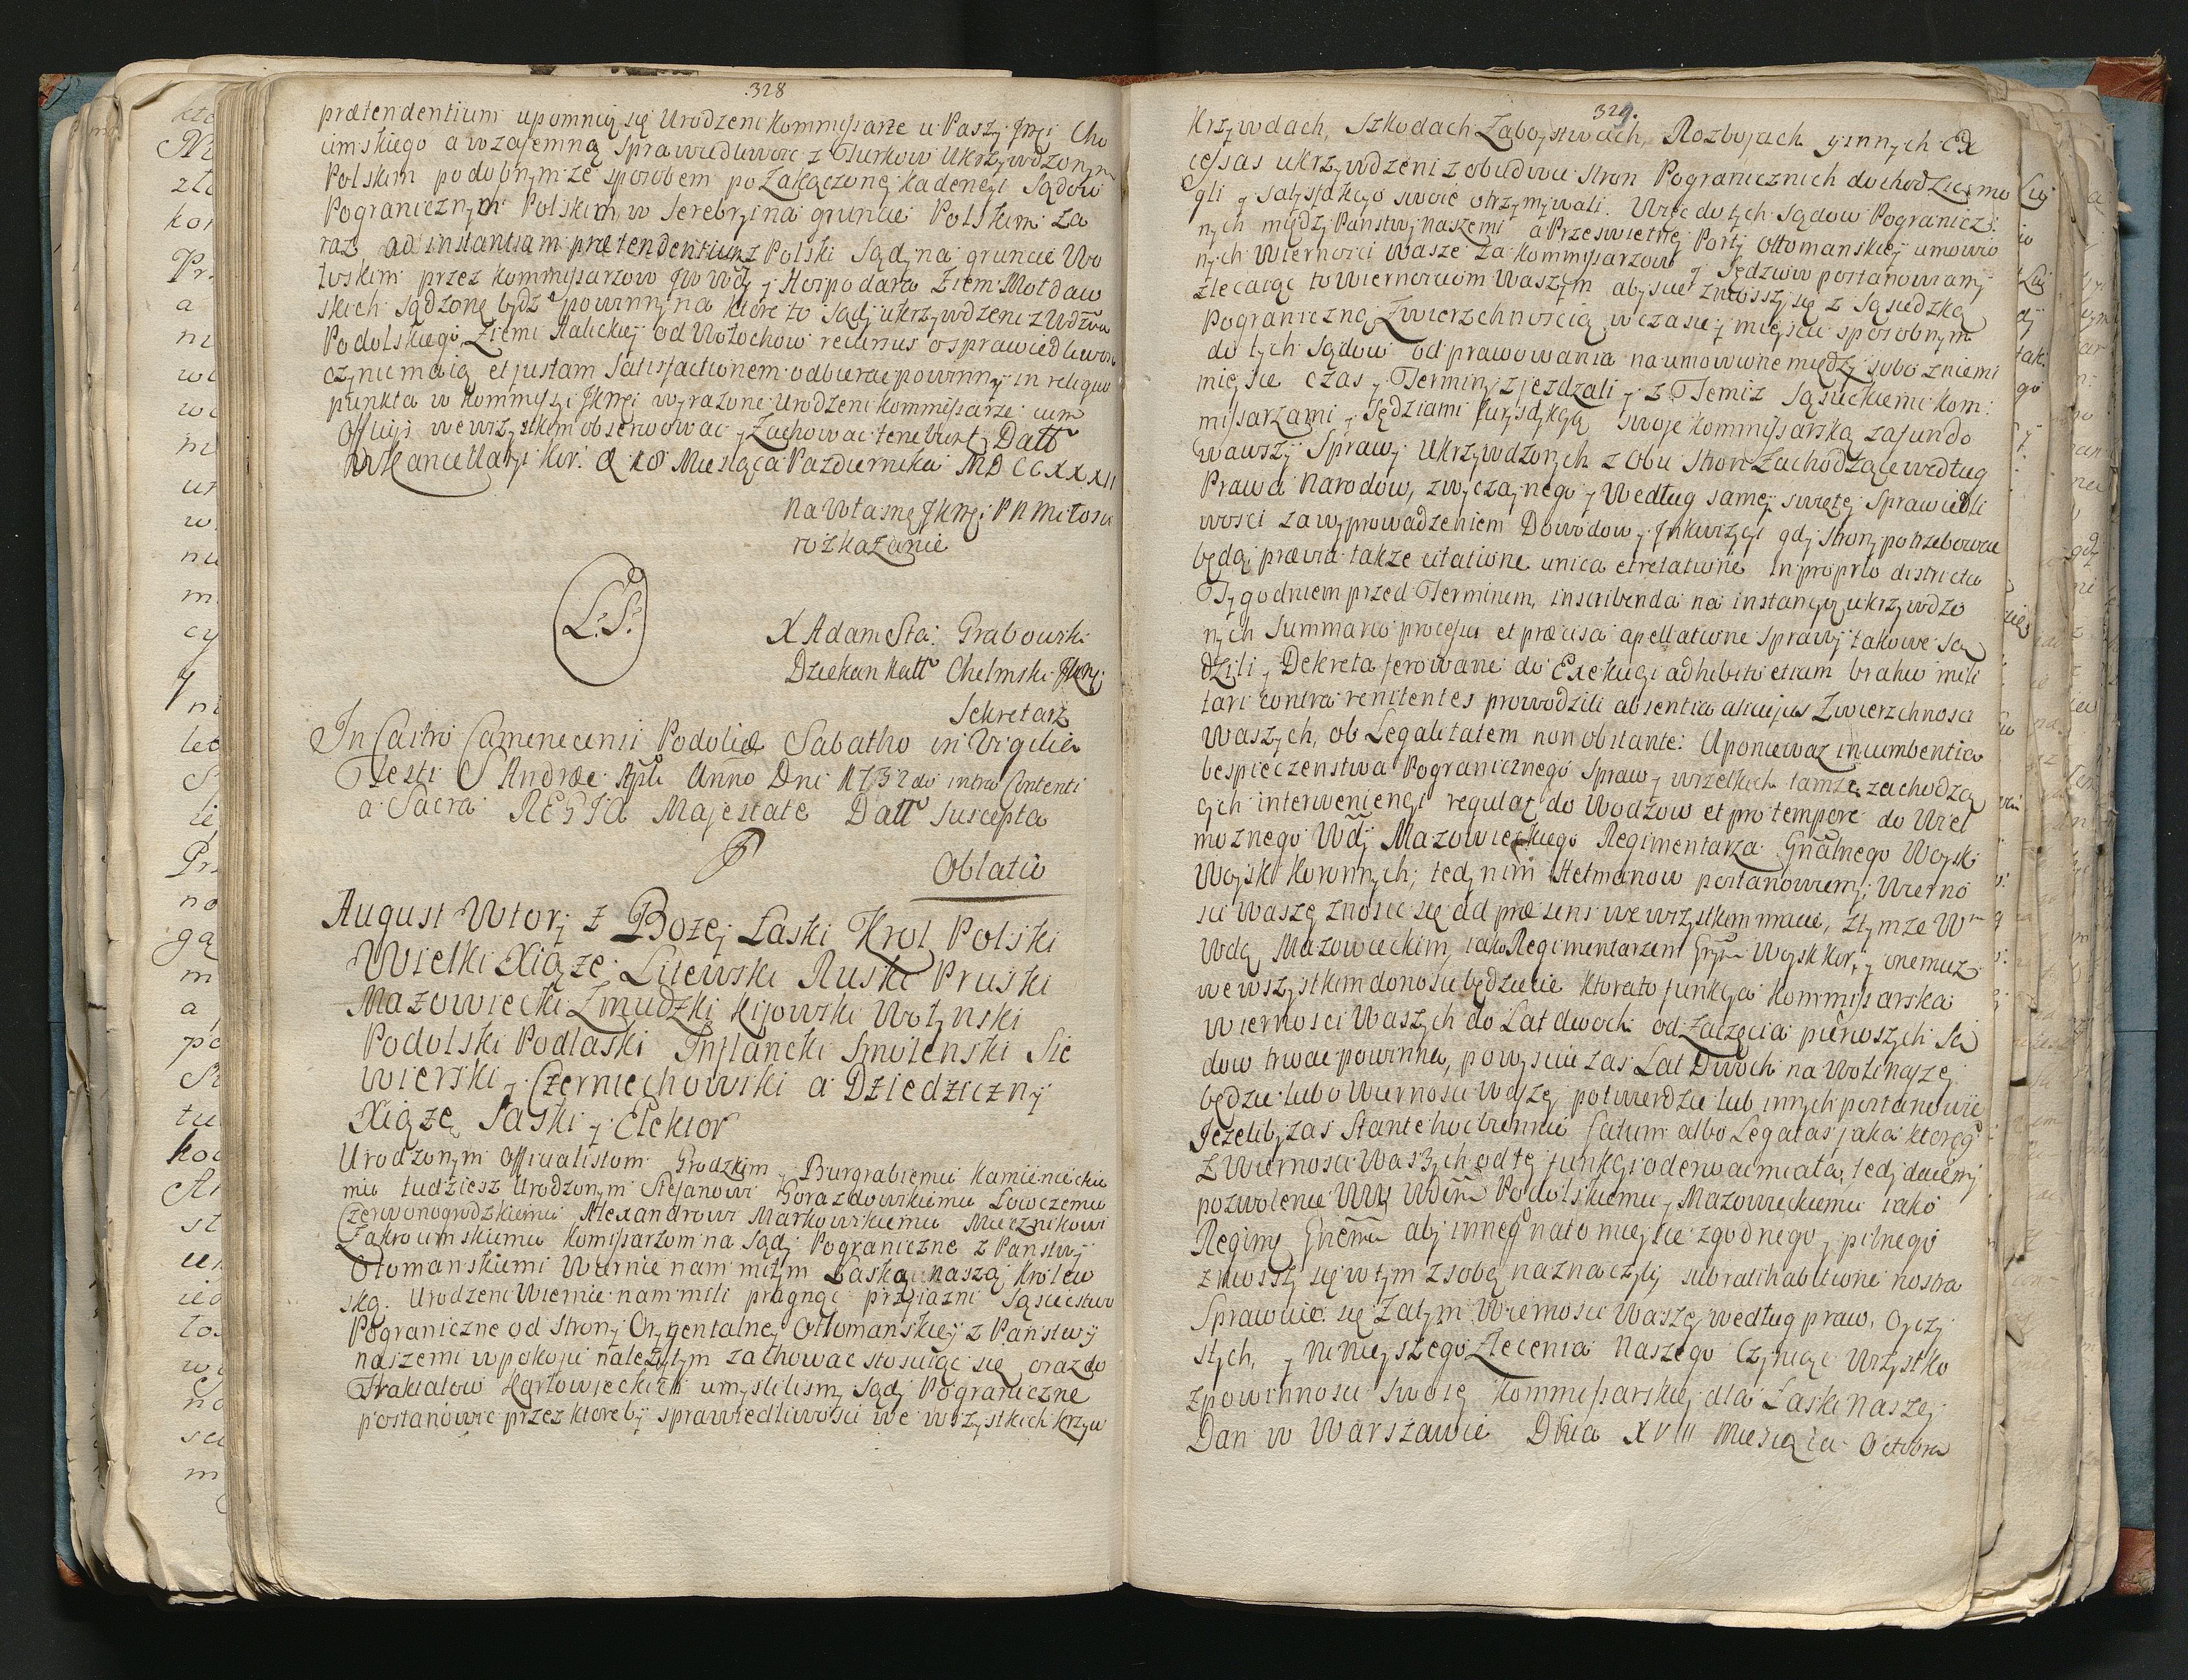 328
prætendentium upomnią się Urodzeni Kommissarze u Paszy Jmci Cho
cimskiego a wzaiemną Sprawiedliwosc z Turkow Ukrzywdzonym
Polskim podobnymze sposobem po Zakączoney Kadencyi Sądow
Pogranicznym Polskim, w Serebryi na gruncie Polskim za
raz ad instantiam prætendentium z Polski Sądy na gruncie Wo
łoskim przez Kommissarzow JW Wdy y Hospodara Ziem Mołdaw
skich sądzone bydz powinny na które to Sądy ukrzywdzeni z Wdztwa
Podolskiego, Ziemi Halickiey od Wołochow recursus o sprawiedliwosc
czynic maią et justam Satisfactionem odbierac powinny in reliquo
punkta w Kommissyi JKMci wyrazone Urodzeni Kommissarze cum
Officijs we wszystkim obserwowac y Zachowac tenebunt Datt
w Kancellaryi Kor. d 18 Miesiąca Pazdziernika MDCCXXXII
Na Własne JKMci PN Miłosci
rozkazanie
L. S.
X Adam Sta: Grabowski
Dziekan Katt Chelmski JKMci
Sekretarz
In Castro Camenecensi Podoliæ Sabatho in Vigilia
Festi S Andreæ Apli Anno Dni 1732do intro Contenti
a Sacra REGIA Majestate Datt Suscepta
Oblatio
August Wtory z Bozey Łaski Krol Polski
Wielki Xiąze Litewski Ruski Pruski
Mazowiecki Zmudzki Kijowski Wołynski
Podolski Podlaski Inflancki Smolenski Sie
wierski y Czerniechowski a Dziedziczny
Xiąze Saski y Elektor
Urodzonym Officialistom Grodzkim y Burgrabiemu Kamieniecki
mu tudziesz Urodzonym Stefanowi Gorazdowskiemu Łowczemu
Czerwonogrodzkiemu Alexandrowi Markowskiemu Miecznikowi
Zakroczimskiemu Komissarzom na Sądy Pograniczne z Panstwy
Otomanskiemi Wiernie nam miłym Łaskę naszą Krolew
ską. Urodzeni Wiernie nam mili pragnąc przyiazni Sąsiectwo
Pograniczne od strony Oryentalney Ottomanskiey z Panstwy
naszemi w pokoju nalezytym zachowac stosuiąc się oraz do
Traktatow Karłowieckich umyslilismy Sądy Pograniczne
postanowic przez ktoreby sprawiedliwosci we wszystkich krzyw
329.
Krzywdach, Szkodach Zaboystwach, Rozbojach y innych Ex
cessas ukrzywdzeni z obudwu stron Pogranicznich dochodzic mo
gli y satysfakcyo swoie otrzymywali. Więc do tych Sądow Pogranicz:
nych między Panstwy Naszemi a Przeswietney Porty Ottomanskiey umowio
nych Wiernosci Wasze za Kommissarzow y Sędziow postanowiamy
zlecaiąc to Wiernosciom Waszym abyscie zniosszy się z Sąsiedzką
Pograniczną Zwierzchnoscią w czasie y mieyscu sposobnym
do tych Sądow odprawowania na umowione między sobo z niemi
mieysce czas y Terminy zjezdzali y z Temiz Sąsieckiemi Kom:
missarzami y Sędziami Jurysdykcyą swoje Kommissarską zafundo
wawszy Sprawy Ukrzywdzonych z obu Stron Zachodzące według
Prawa Narodow, zwyczaynego y Według samey swiętey Sprawiedli
wosci za wyprowadzeniem Dowodow y Inkwizycyi gdy strony potrzebowac
będą prævia takze citatione unica et relatione in proprio districtu
Tygodniem przed Terminem, inscribenda na instancyą ukrzywdzo
nych Summario processu et præcisa apellatione sprawy takowe są
dzili y Dekreta ferowane do Exekucyi adhibito etiam brahio mili
tari contra renitentes prowodzili absentia alicujus Zwierzchnosci
Waszych, ob Legalitatem non obstante: A poniewaz incumbentia
bespieczenstwa Pogranicznego Spraw y wszelkich tamze zachodzą
cych interweniencyi regulat do Wodzow et pro tempore do Wiel
moznego Wdy Mazowieckiego Regimentarza Gnalnego Woysk
Woysk Koronnych; tedy nim Hetmanow postanowiemy, Wierno
sci Wasze znosic się ad præsens we wszystkim macie, z tymze Wm
Wdą Mazowieckim, iako Regimentarzem Gnym Woysk Kor, y onemuz
we wszystkim donosic będziecie ktorato funkcya Kommissarska
Wiernosci Waszych do Lat dwoch od Zaczęcia pierwszych Są
dow trwac powinna, po wysciu zas Lat Dwoch na Woli naszey
będzie lubo Wiernosci Wasze potwierdzic lub innych postanowic
Jezeliby zas Stante hoc biennio fatum albo Legalas jaka ktorego
z Wiernosci Waszych od tey funkcyi oderwac miała, tedy daiemy
pozwolenie WW Wdm Podolskiemu y Mazowieckiemu iako
Regimę Gnemu aby innego na to mieysce zgodnego y pilnego
zniosszy się w tym z sobą naznaczyli, sub ratihabitione nostra
Sprawcie się Zatym Wiernosci Wasze według praw, Oyczy
stych, y ninieyszego Zlecenia Naszego Czyniąc Wszystko
z powinnosci Swoiey Kommissarskiey dla Łaski naszey
Dan w Warszawie Dnia XVIII Miesiąca Octobra